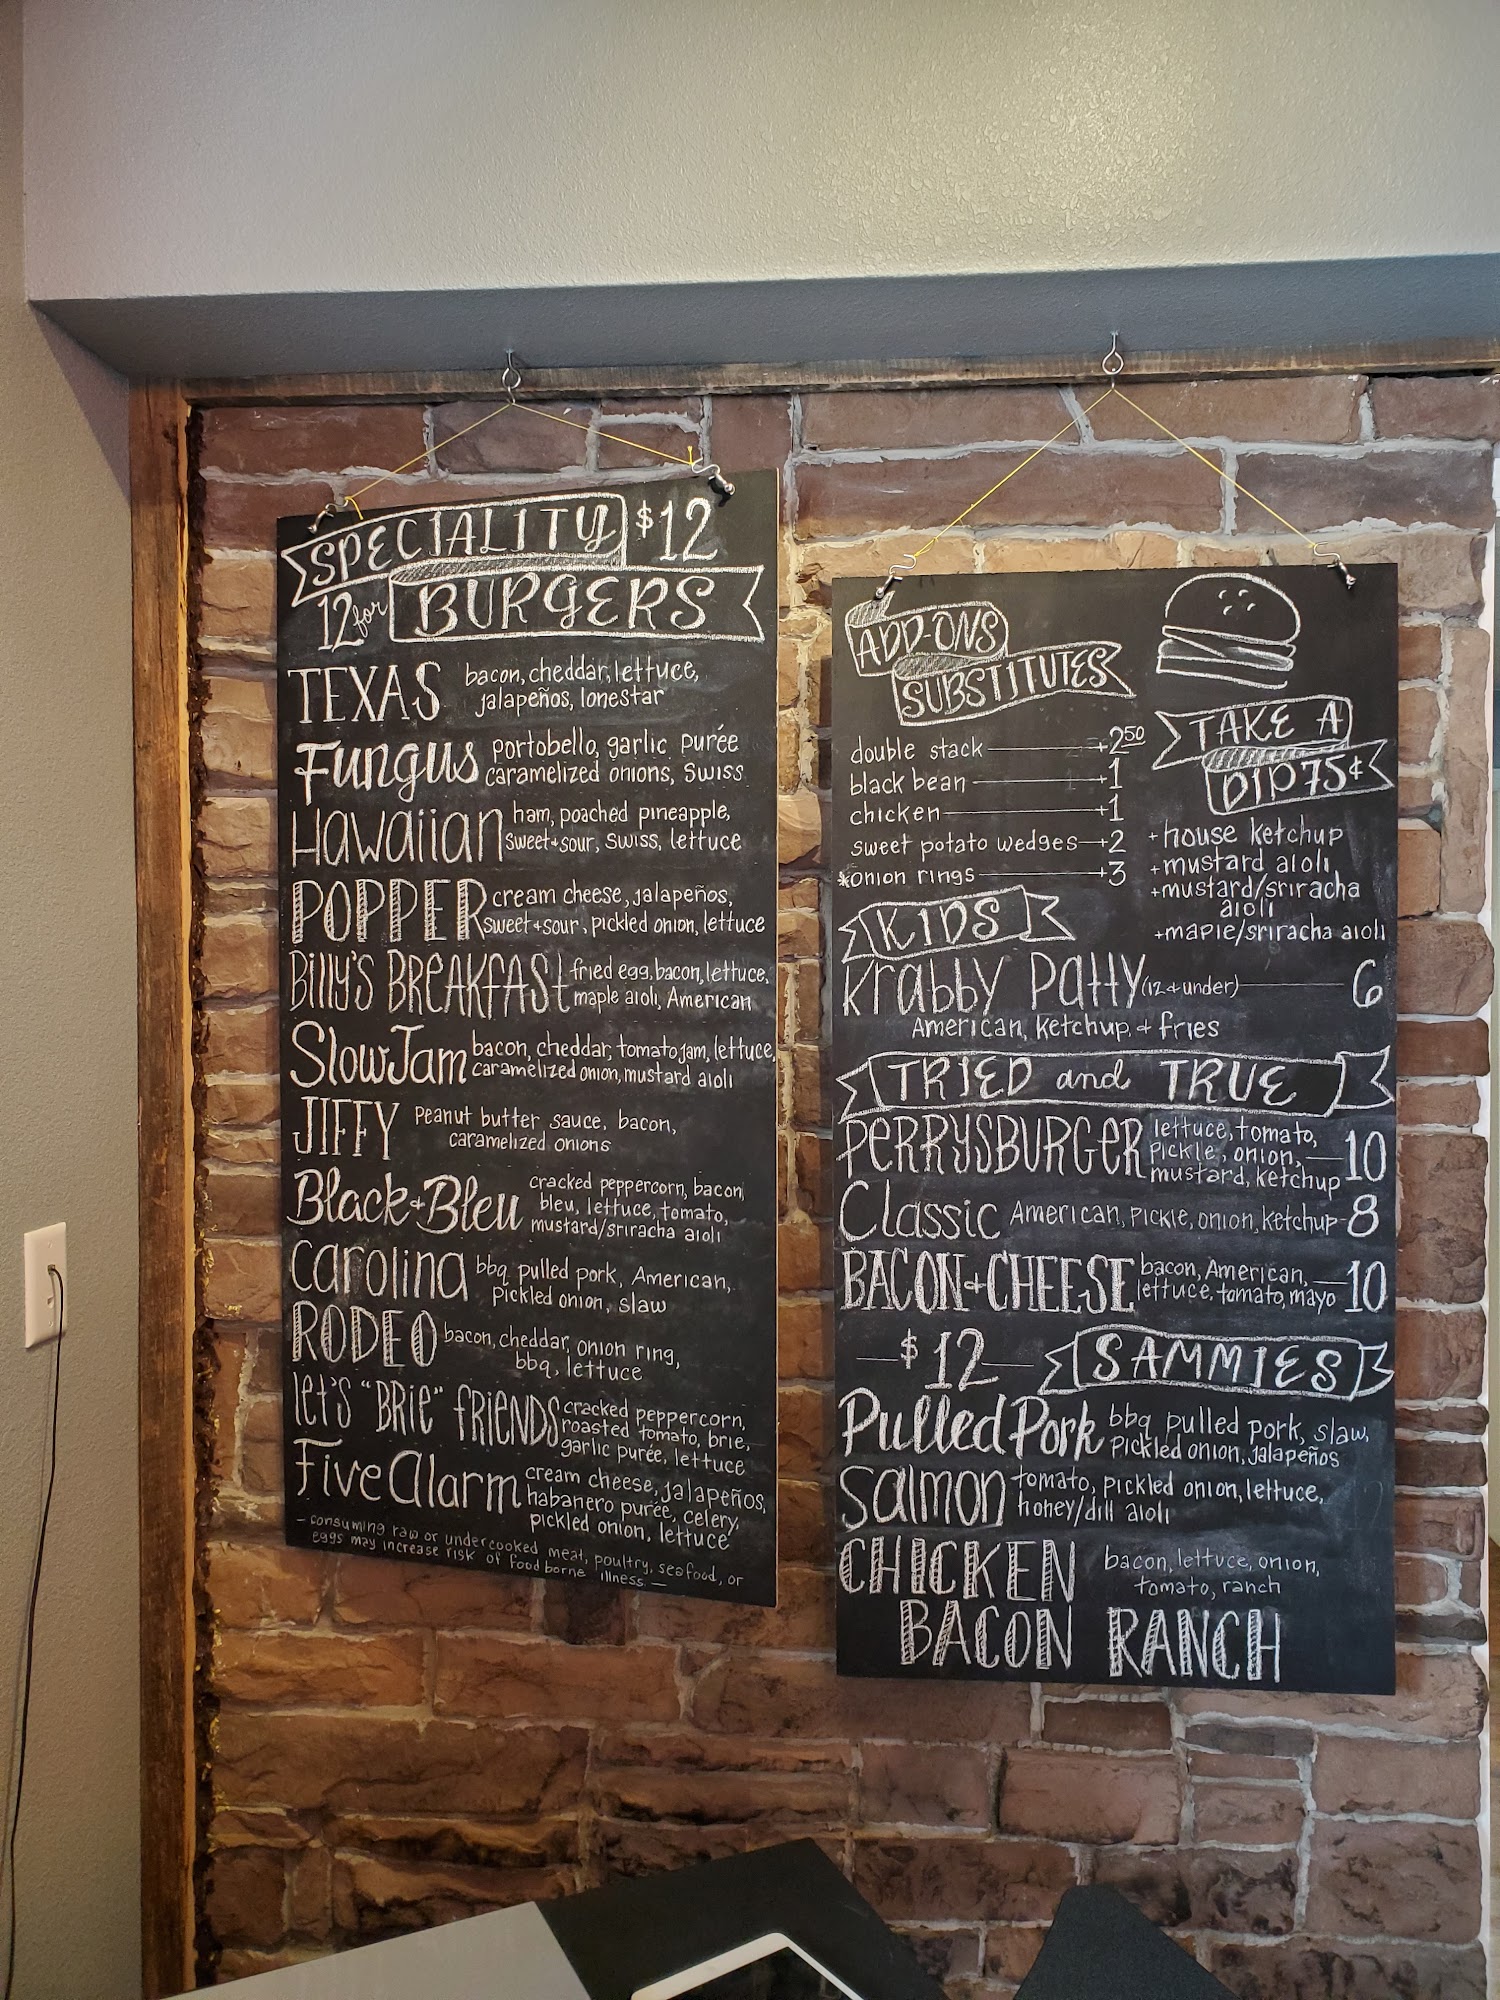 SPECIALITY $12
12 for BURGERS
TEXAS bacon, cheddar, lettuce,
jalapeños, lonestar
Fungus portobello, garlic purée
caramelized onions, Swiss
Hawaiian ham, poached pineapple,
sweet+sour, Swiss, lettuce
POPPER cream cheese, jalapeños,
sweet+sour, pickled onion, lettuce
Billy's Breakfast fried egg, bacon, lettuce,
maple aioli, American
Slow Jam bacon, cheddar, tomato jam, lettuce,
caramelized onion, mustard aioli
JIFFY Peanut butter sauce, bacon,
caramelized onions
Black+Bleu cracked peppercorn, bacon
bleu, lettuce, tomato,
mustard/sriracha aioli
Carolina bbq pulled pork, American,
Pickled onion, slaw
RODEO bacon, cheddar, onion ring,
bbq, lettuce
let's "BRie" FRIENDS cracked peppercorn,
roasted tomato, brie,
garlic purée, lettuce
Five Alarm cream cheese, jalapeños,
habanero purée, celery,
pickled onion, lettuce
- consuming raw or undercooked meat, poultry, seafood, or
eggs may increase risk of food borne illness. -
ADD-ONS
SUBSTITUTES
double stack +2.50
black bean +1
chicken +1
sweet potato wedges +2
*onion rings +3
TAKE A
DIP 75¢
+house ketchup
+mustard aioli
+mustard/sriracha
aioli
+maple/sriracha aioli
KIDS
Krabby Patty (12 + under) 6
American, ketchup, + fries
TRIED and TRUE
PERRYSBURGER lettuce, tomato,
pickle, onion, 10
mustard, ketchup
Classic American, pickle, onion, ketchup - 8
BACON+CHEESE bacon, American,
lettuce, tomato, mayo 10
$12 SAMMIES
Pulled Pork bbq pulled pork, slaw,
Pickled onion, jalapeños
Salmon tomato, pickled onion, lettuce,
honey/dill aioli
CHICKEN bacon, lettuce, onion,
tomato, ranch
BACON RANCH